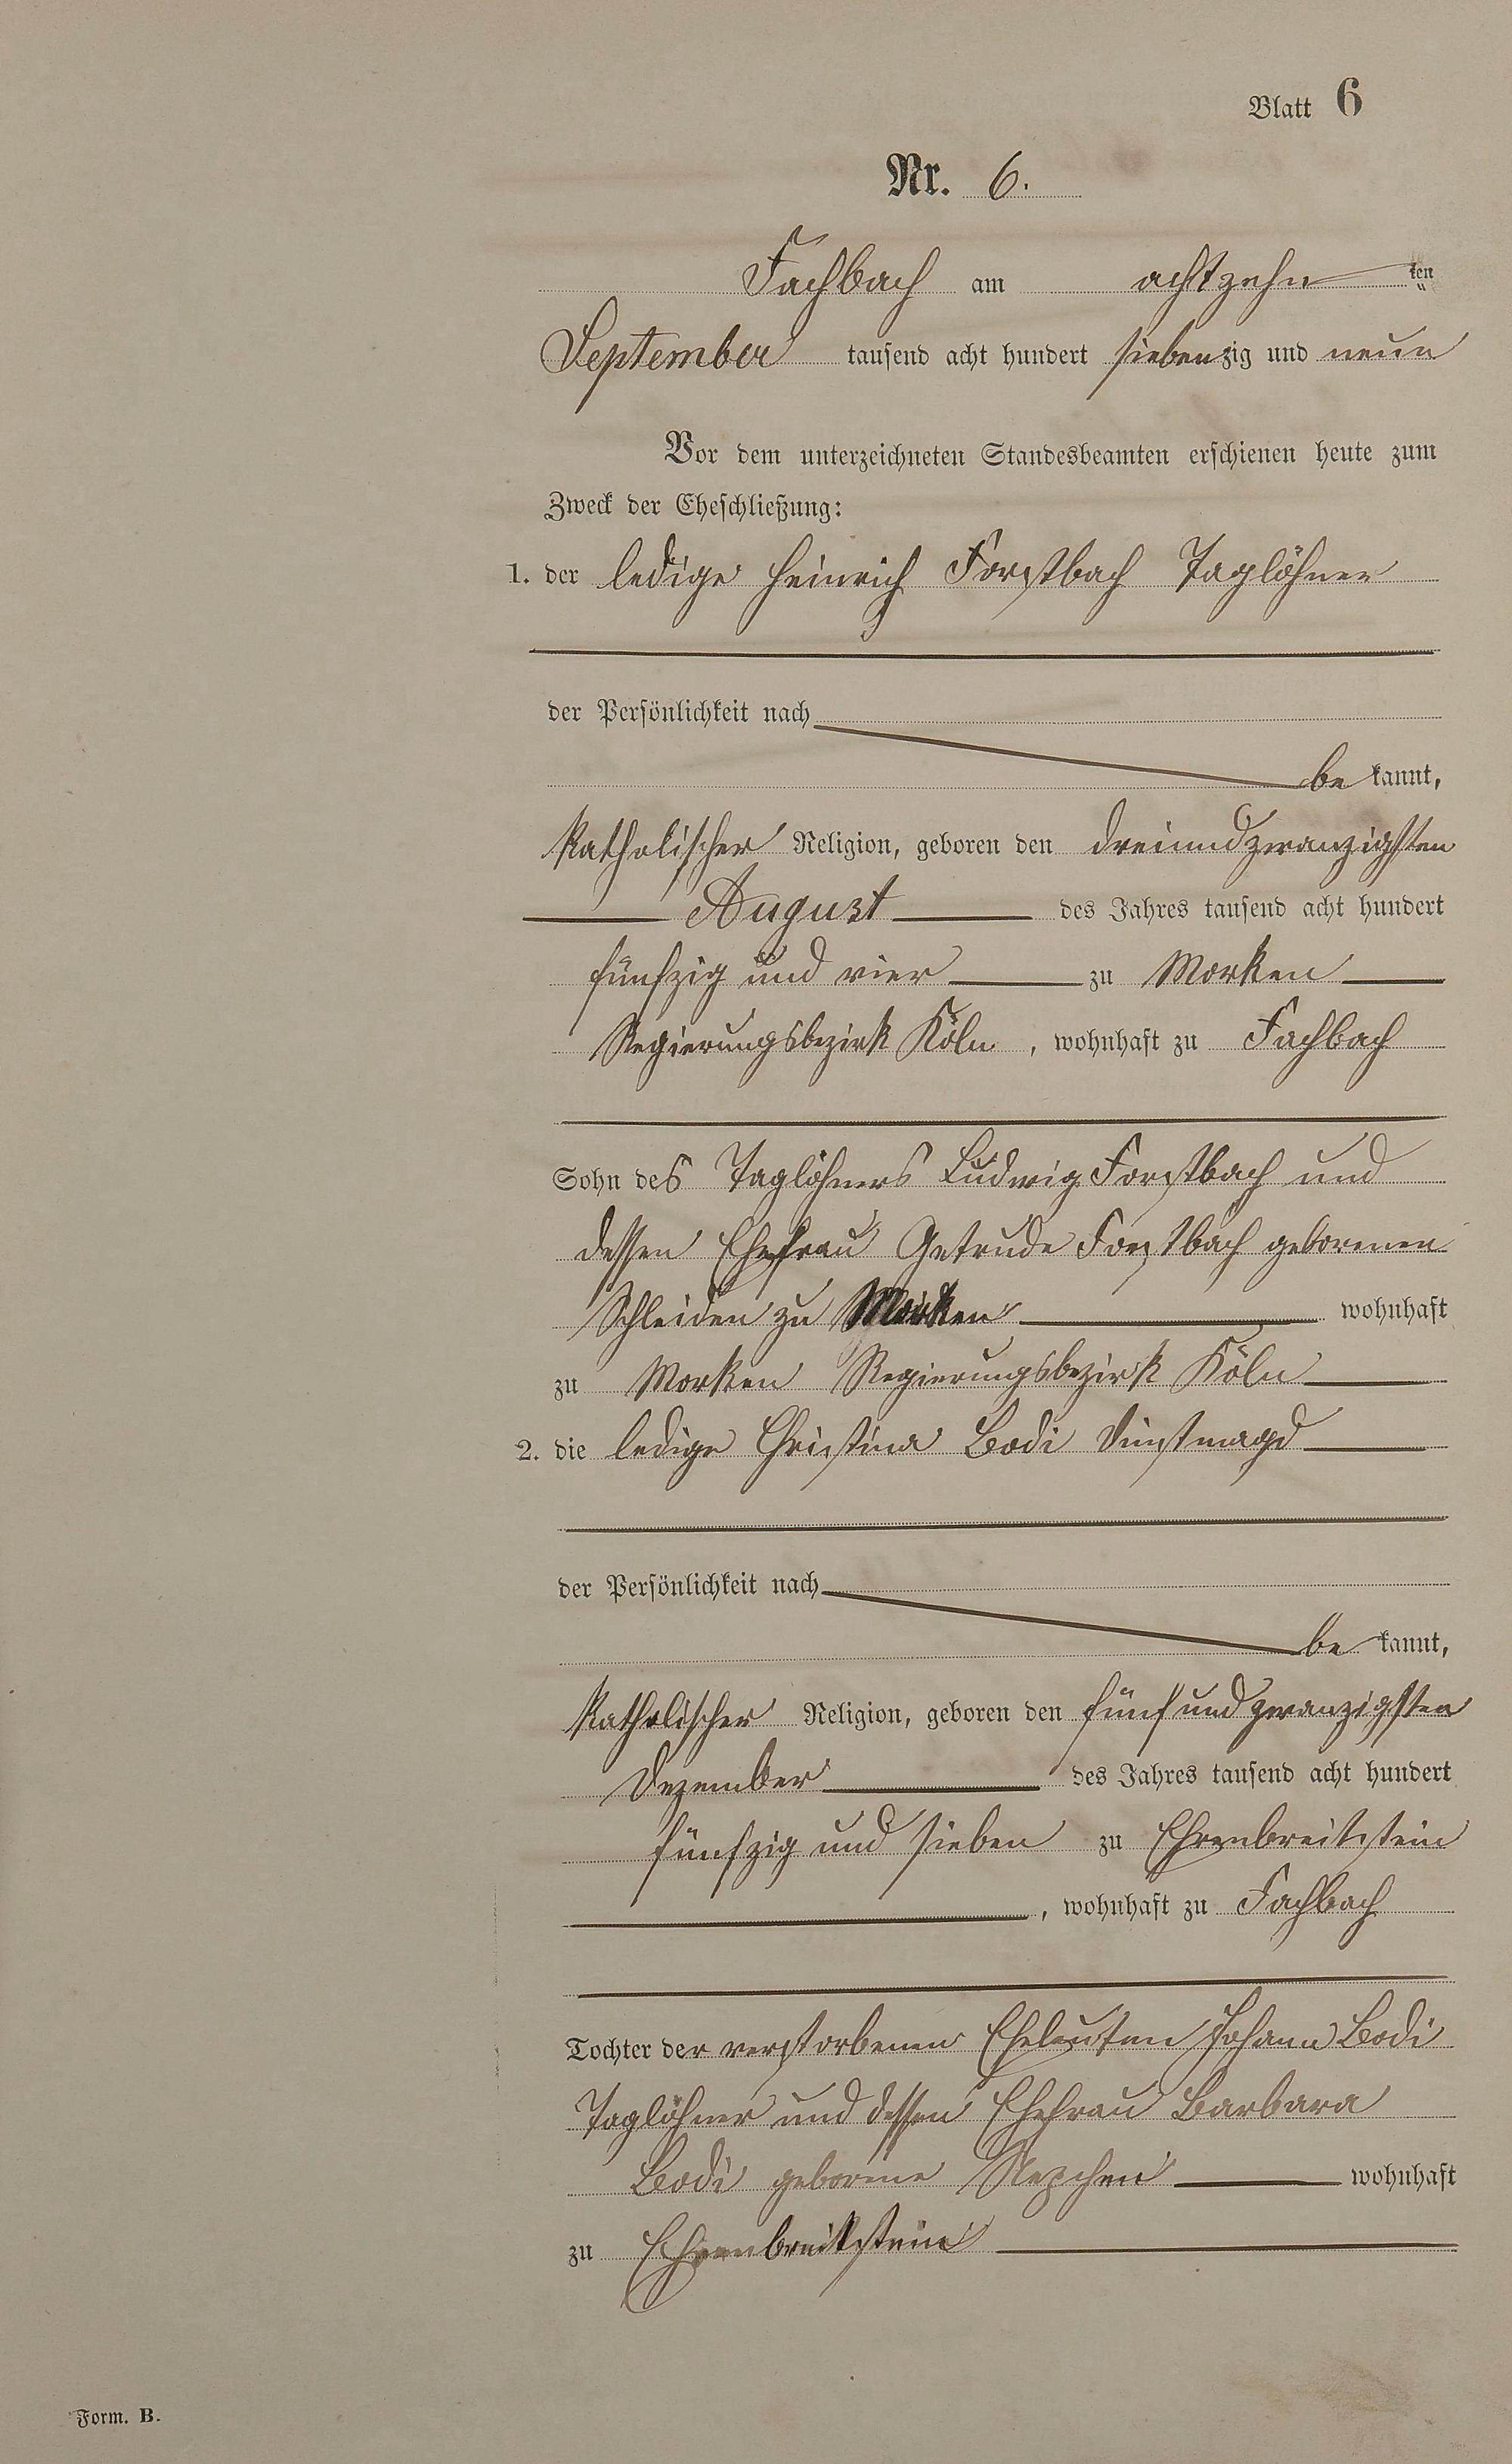 Blatt 6
Nr. 6.
Fachbach am achtzehn ten
September tausend acht hundert siebenzig und neun
Vor dem unterzeichneten Standesbeamten erschienen heute zum
Zweck der Eheschließung:
1. der ledige Heinrich Forstbach Taglöhner
der Persönlichkeit nach
be kannt,
katholischer Religion, geboren den dreiundzwanzigsten
August des Jahres tausend acht hundert
fünfzig und vier zu Morken
Regierungsbezirk Köln, wohnhaft zu Fachbach
Sohn des Taglöhners Ludwig Forstbach und
dessen Ehefrau Getrude Forstbach geborenen
Schleiden zu Morken wohnhaft
zu Morken Regierungsbezirk Köln
2. die ledige Christina Bodi Dinstmagd
der Persönlichkeit nach
be kannt,
katholischer Religion, geboren den fünf und zwanzigsten
Dezember des Jahres tausend acht hundert
fünfzig und sieben zu Ehrenbreitstein
, wohnhaft zu Fachbach
Tochter der verstorbenen Eheleuten Johann Bodi
Taglöhner und dessen Ehefrau Barbara
Bodi geborene wohnhaft
zu Ehrenbreitstein
Form. B.